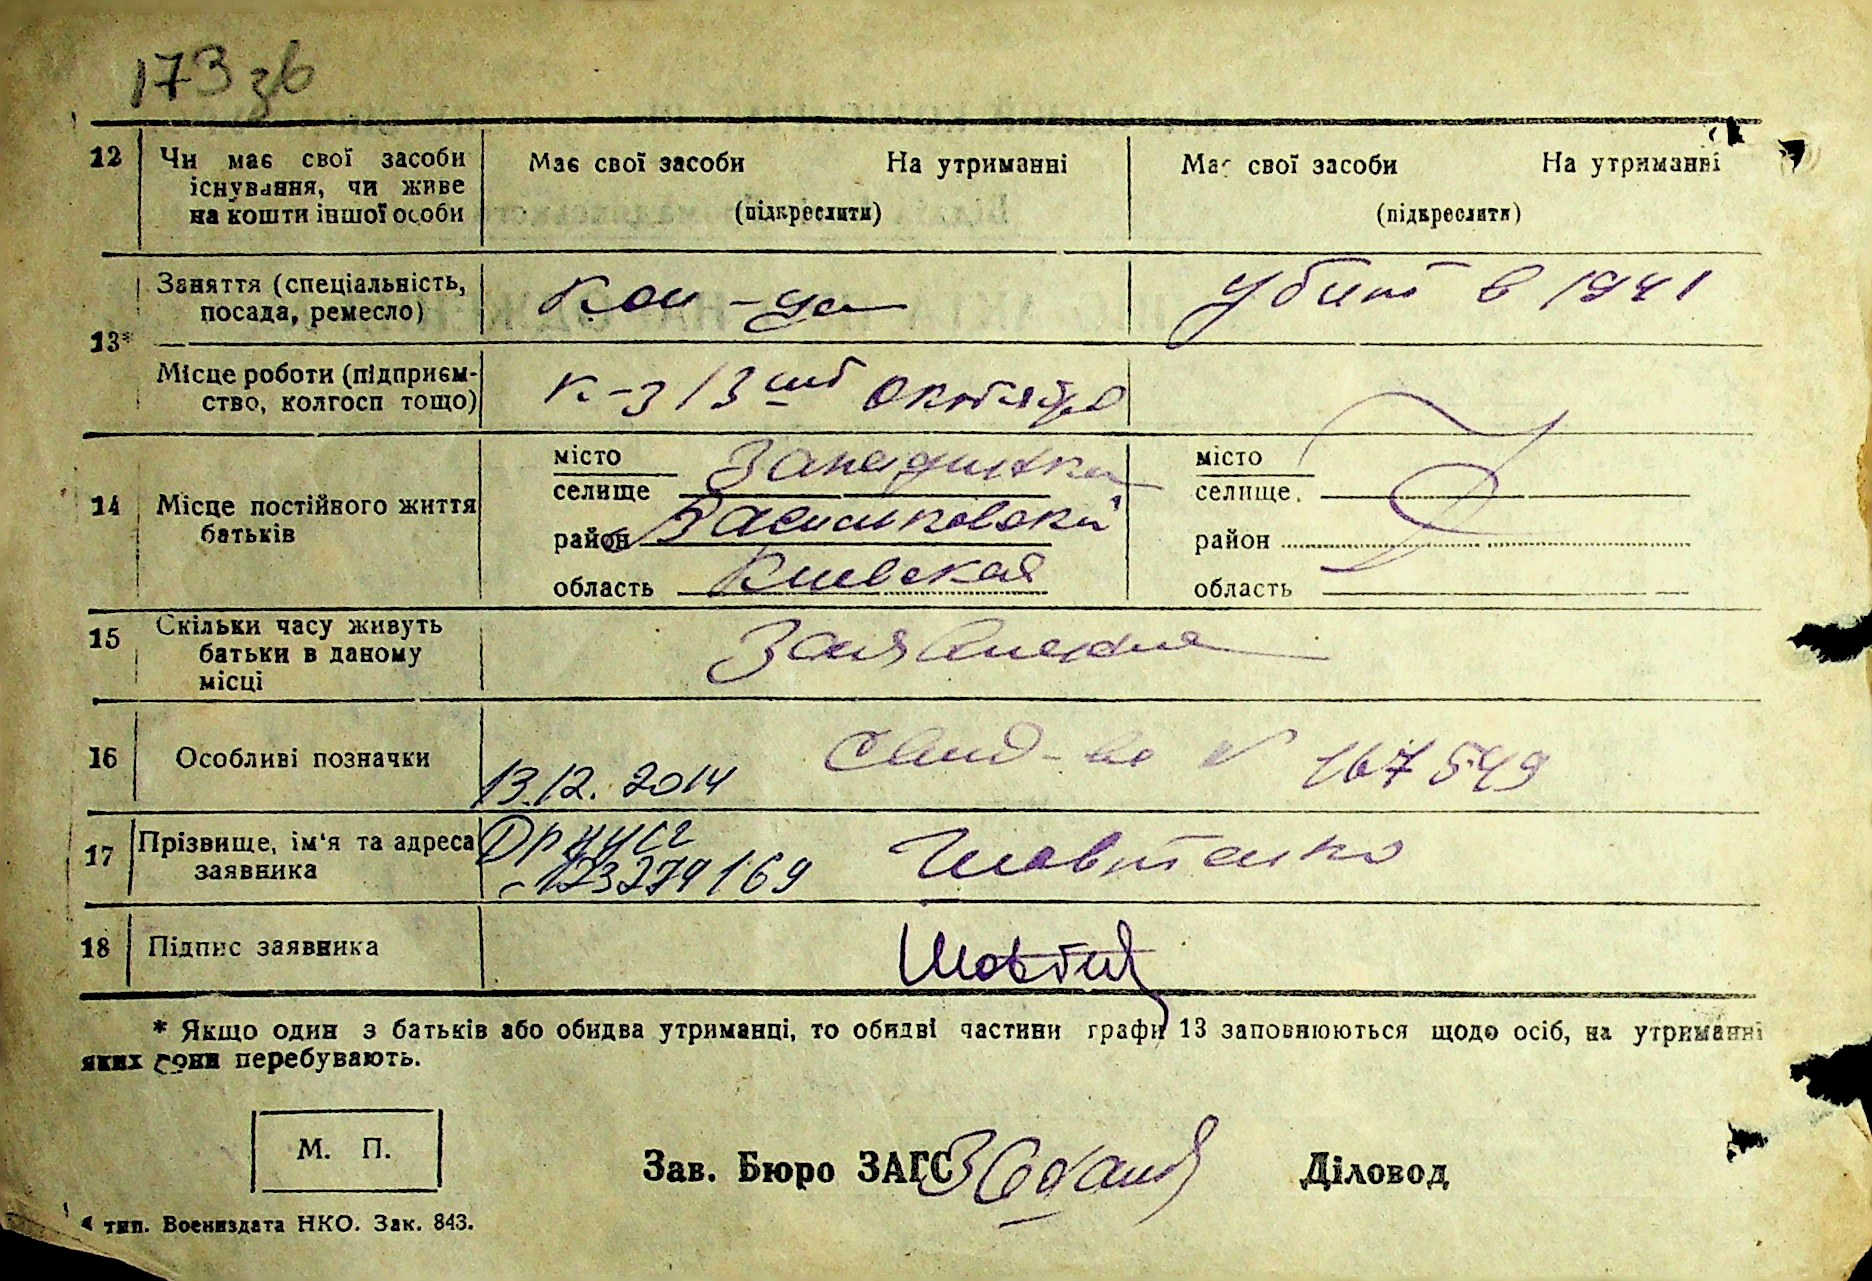 173 зв
12 Чи має свої засоби існування, чи живе на кошти іншої особи
Має свої засоби На утриманні
(підкреслити)
Має свої засоби На утриманні
(підкреслити)
13* Заняття (спеціальність, посада, ремесло)
Кол-ца
Убит в 1941
Місце роботи (підприємство, колгосп тощо)
к-з 13 Октября
14 Місце постійного життя батьків
місто
селище
район Васильковский
область Киевская
місто
селище
район
область
15 Скільки часу живуть батьки в даному місці
Заявление
16 Особливі позначки
13.12.2014
Свид-во № 167549
17 Прізвище, ім'я та адреса заявника
123279169
Шовтенко
18 Підпис заявника
* Якщо один з батьків або обидва утриманці, то обидві частини графи 13 заповнюються щодо осіб, на утриманні
яких вони перебувають.
М. П.
Зав. Бюро ЗАГС
Діловод
тип. Воениздата НКО. Зак. 843.